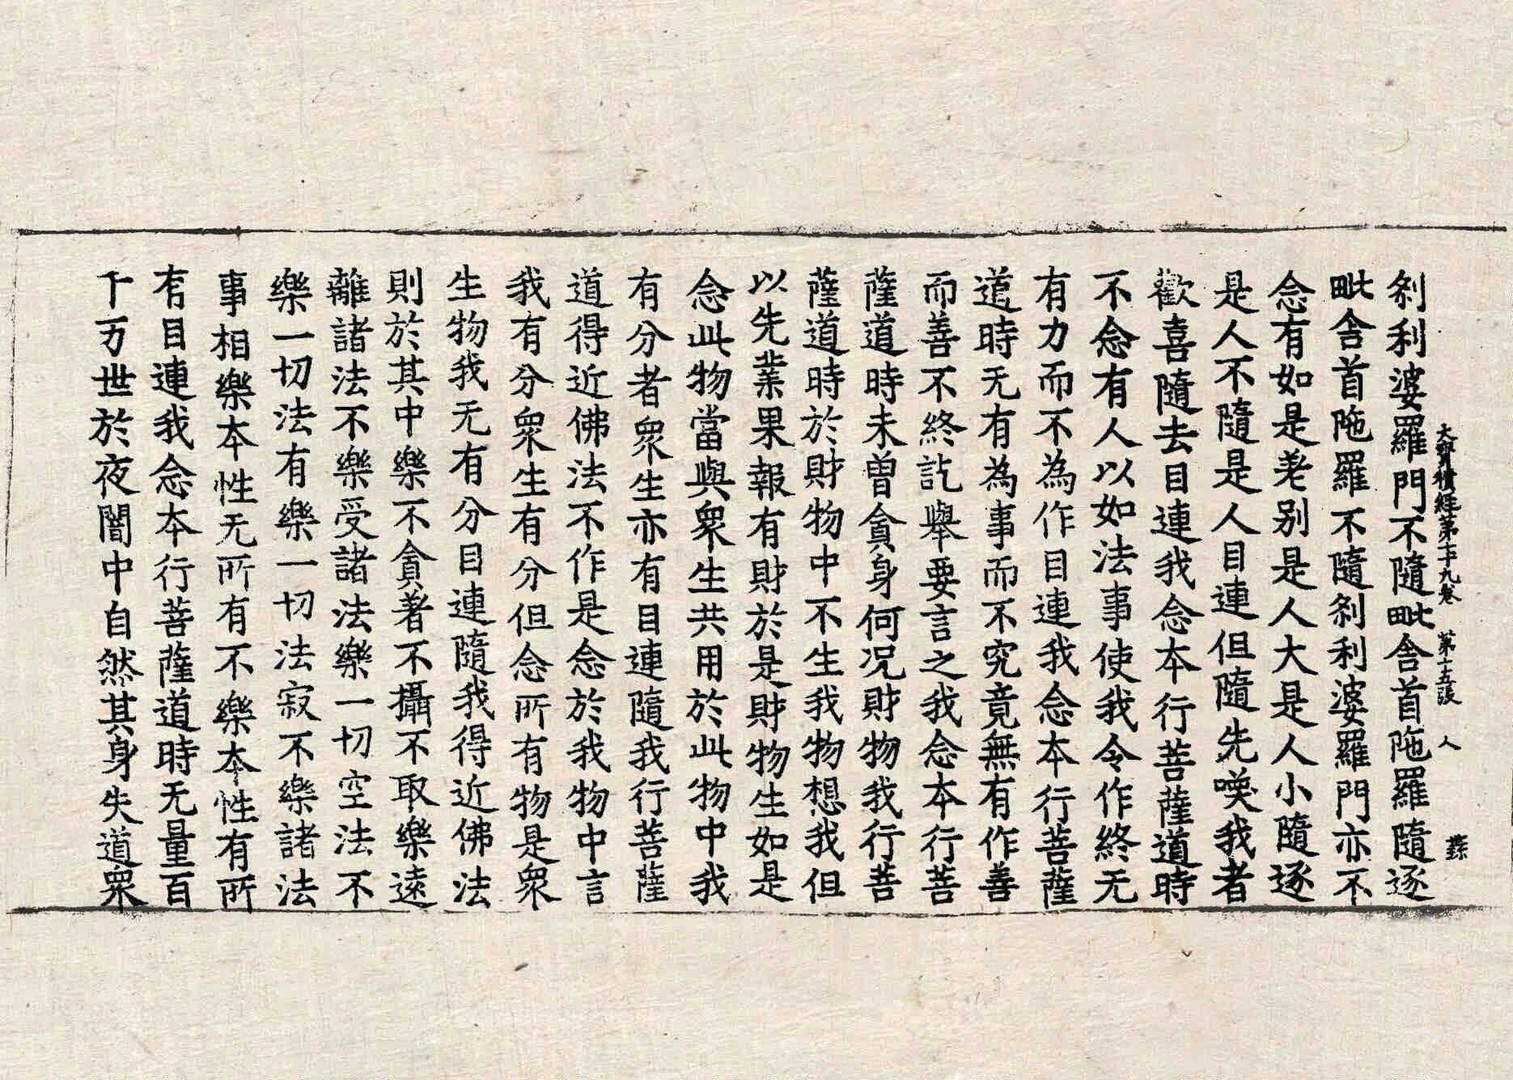 刹利婆羅門不隨毗舍首陁羅隨逐
大寶積經第七十九卷　第十五張　人
毗舍首陁羅不隨刹利婆羅門亦不
念有如是差别是人大是人小隨逐
是人不隨是人目連但隨先喚我者
歡喜隨去目連我念本行菩薩道時
不念有人以如法事使我令作終无
有力而不為作目連我念本行菩薩
道時无有為事而不究竟無有作善
而善不終訖舉要言之我念本行菩
薩道時未曾貪身何况財物我行菩
薩道時於財物中不生我物想我但
以先業果報有財於是財物生如是
念此物當與衆生共用於此物中我
有分者衆生亦有目連隨我行菩薩
道得近佛法不作是念於我物中言
我有分衆生有分但念所有物是衆
生物我无有分目連隨我得近佛法
則於其中樂不貪著不攝不取樂遠
離諸法不樂受諸法樂一切空法不
樂一切法有樂一切法寂不樂諸法
事相樂本性无所有不樂本性有所
有目連我念本行菩薩道時无量百
千万世於夜闇中自然其身失道衆